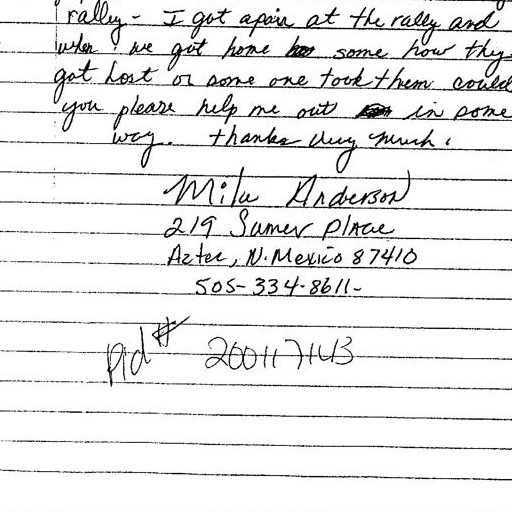 rally - I got apair at the rally and
when we got home some how they
got Lost or some one took them could
you please help me out in some
way. thanks very much.
Mila Anderson
219 Sumer Place
Aztec, N. Mexico 87410
505-334-8611-
pid # 2001171143